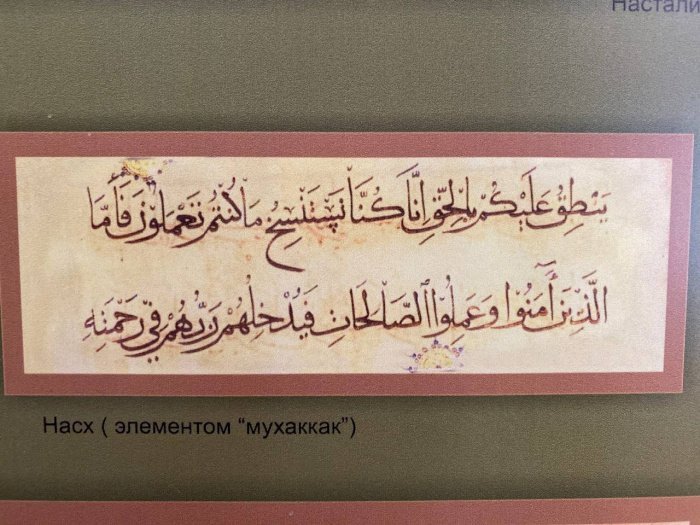 Настали
يَنْطِقُ عَلَيْكُمْ بِالْحَقِّ اِنَّا كُنَّا نَسْتَنْسِخُ مَا كُنْتُمْ تَعْمَلُوْنَ فَأَمَّا
الَّذِيْنَ آمَنُوْا وَعَمِلُوا الصَّالِحَاتِ فَيُدْخِلُهُمْ رَبُّهُمْ فِيْ رَحْمَتِهِ
Насх ( элементом “мухаккак”)